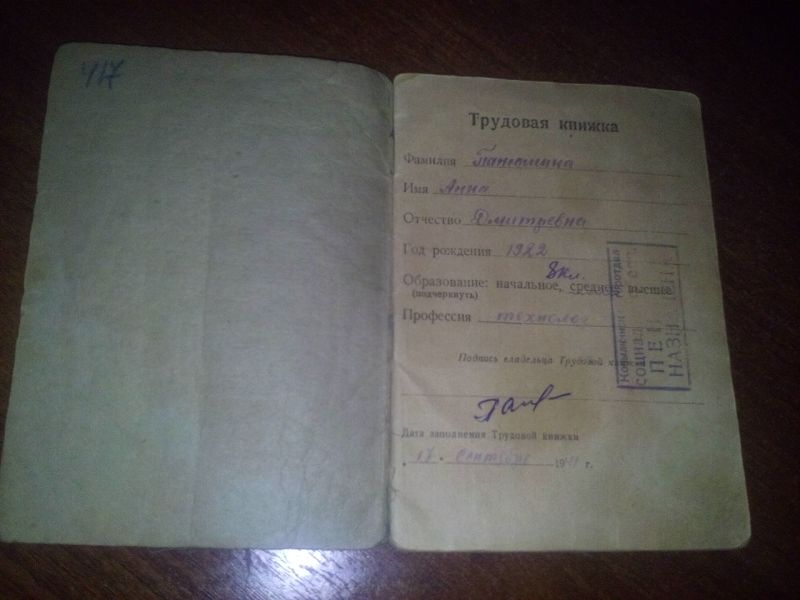 417
Трудовая книжка
Фамилия
Имя Анна
Отчество Дмитриевна
Год рождения 1922
8 кл.
Образование: начальное, среднее, высшее
(подчеркнуть)
Профессия технолог
Подпись владельца Трудовой книжки
Дата заполнения Трудовой книжки
17 сентября 1941 г.
социал
ПЕН
НАЗН